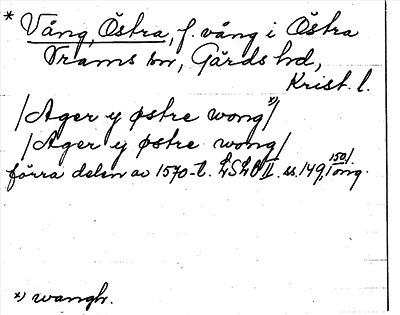 * Vång, Östra, f. vång i Östra
Vrams sn, Gärds hd,
Krist. l.
/Ager y østre wong x)/
/Ager y østre wong/
förra delen av 1570-t. LSLB II. ss. 149, 150 f. orig.
x) wangh.